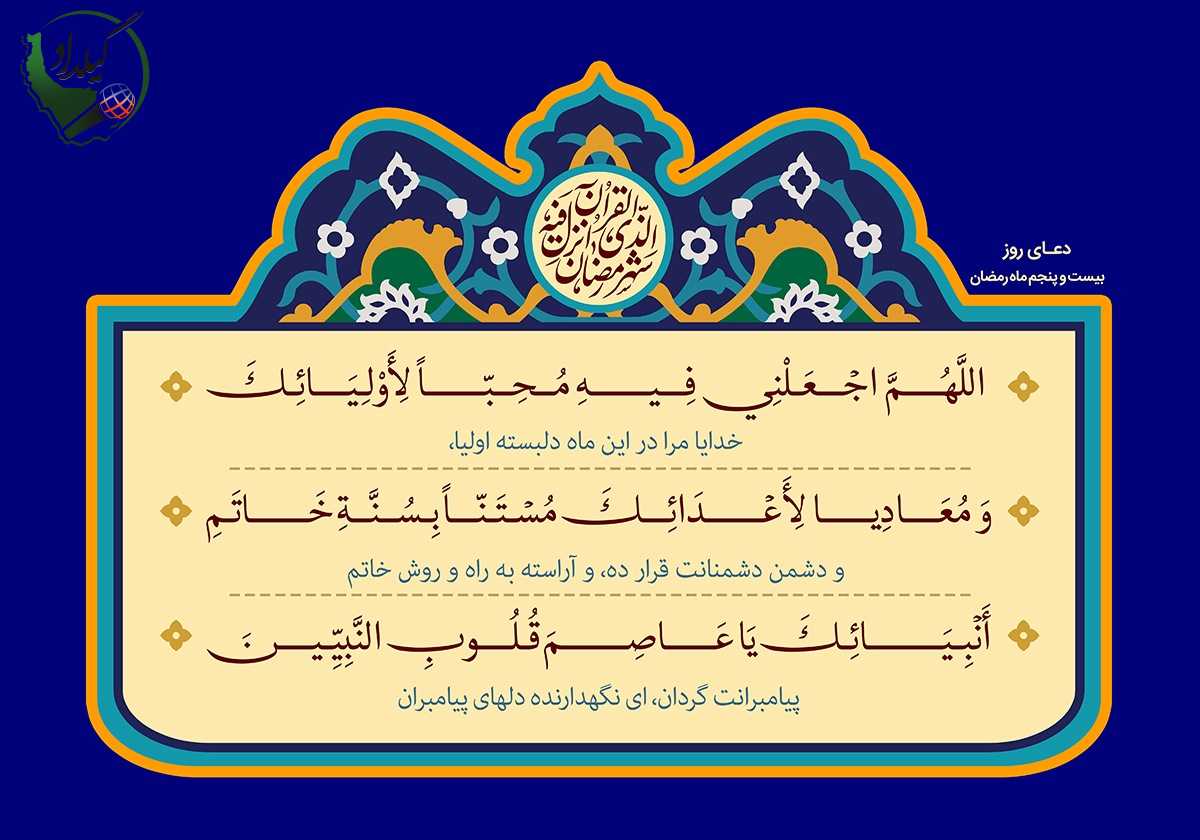 گیلداد
الَّذی القُرآن
اُنزِلَ فیهِ
شَهرُ رَمَضان
دعـای روز
بیست و پنجم ماه رمضان
اللَّهُمَّ اجْعَلْنِي فِيهِ مُحِبّاً لِأَوْلِيَائِكَ
خدایا مرا در این ماه دلبسته اولیا،
وَ مُعَادِيا لِأَعْدَائِكَ مُسْتَنّاً بِسُنَّةِ خَاتَمِ
و دشمن دشمنانت قرار ده، و آراسته به راه و روش خاتم
أَنْبِيَائِكَ يَا عَاصِمَ قُلُوبِ النَّبِيِّينَ
پیامبرانت گردان، ای نگهدارنده دلهای پیامبران